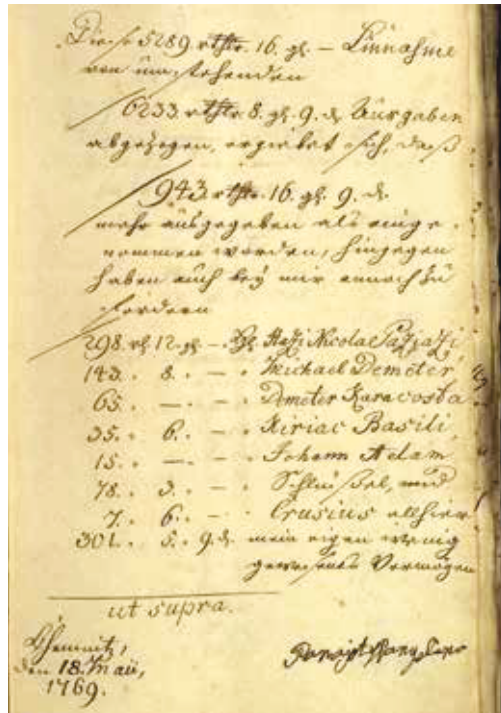 Diese 5289. rthlr. 16. gl. – Einnahme
von umstehenden
6233. rthlr. 8. gl. 9. d. Ausgaben
abgezogen, ergiebet sich, daß
943. rthlr. 16. gl. 9. d.
mehr ausgegeben als einge-
nommen worden, hingegen
haben auch bey mir annoch zu
fordern
298. rl. 12. gl. – H. Hazi Nicola Pazjazi
143. . 8. – . Michael Demeter
65. – . – . Demeter Karacosta
35. . 6. – . Kiriac Basili,
15. . – . – . Johann Adam
78. . 3. – . Schleißel, und
7. . 6. – . Crusius allhier
301. . 5. . 9. d. mein eigen wenig
gewesenes Vermögen
ut supra.
Chemnitz,
den 18. Maii,
1769.